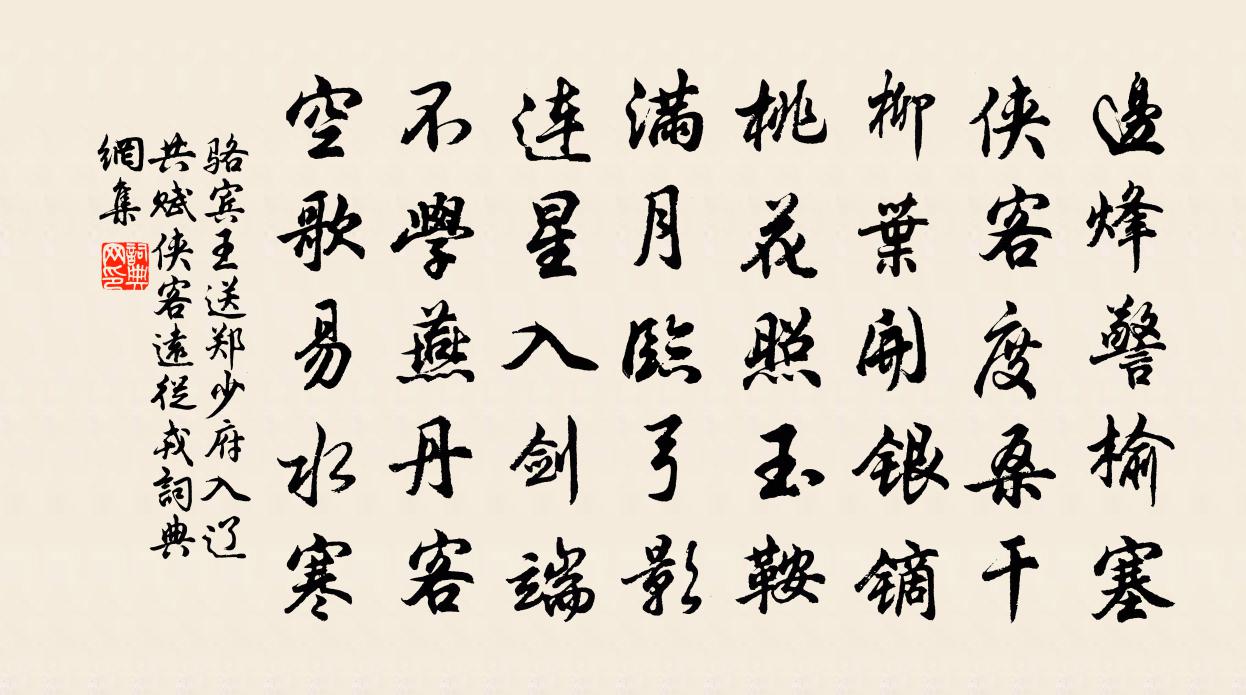 邊烽警榆塞
侠客度桑干
柳葉開銀鏑
桃花照玉鞍
满月臨弓影
连星入剑端
不學燕丹客
空歌易水寒
骆宾王送郑少府入辽
共赋侠客遠從戎詞典
網集
詞典
网印